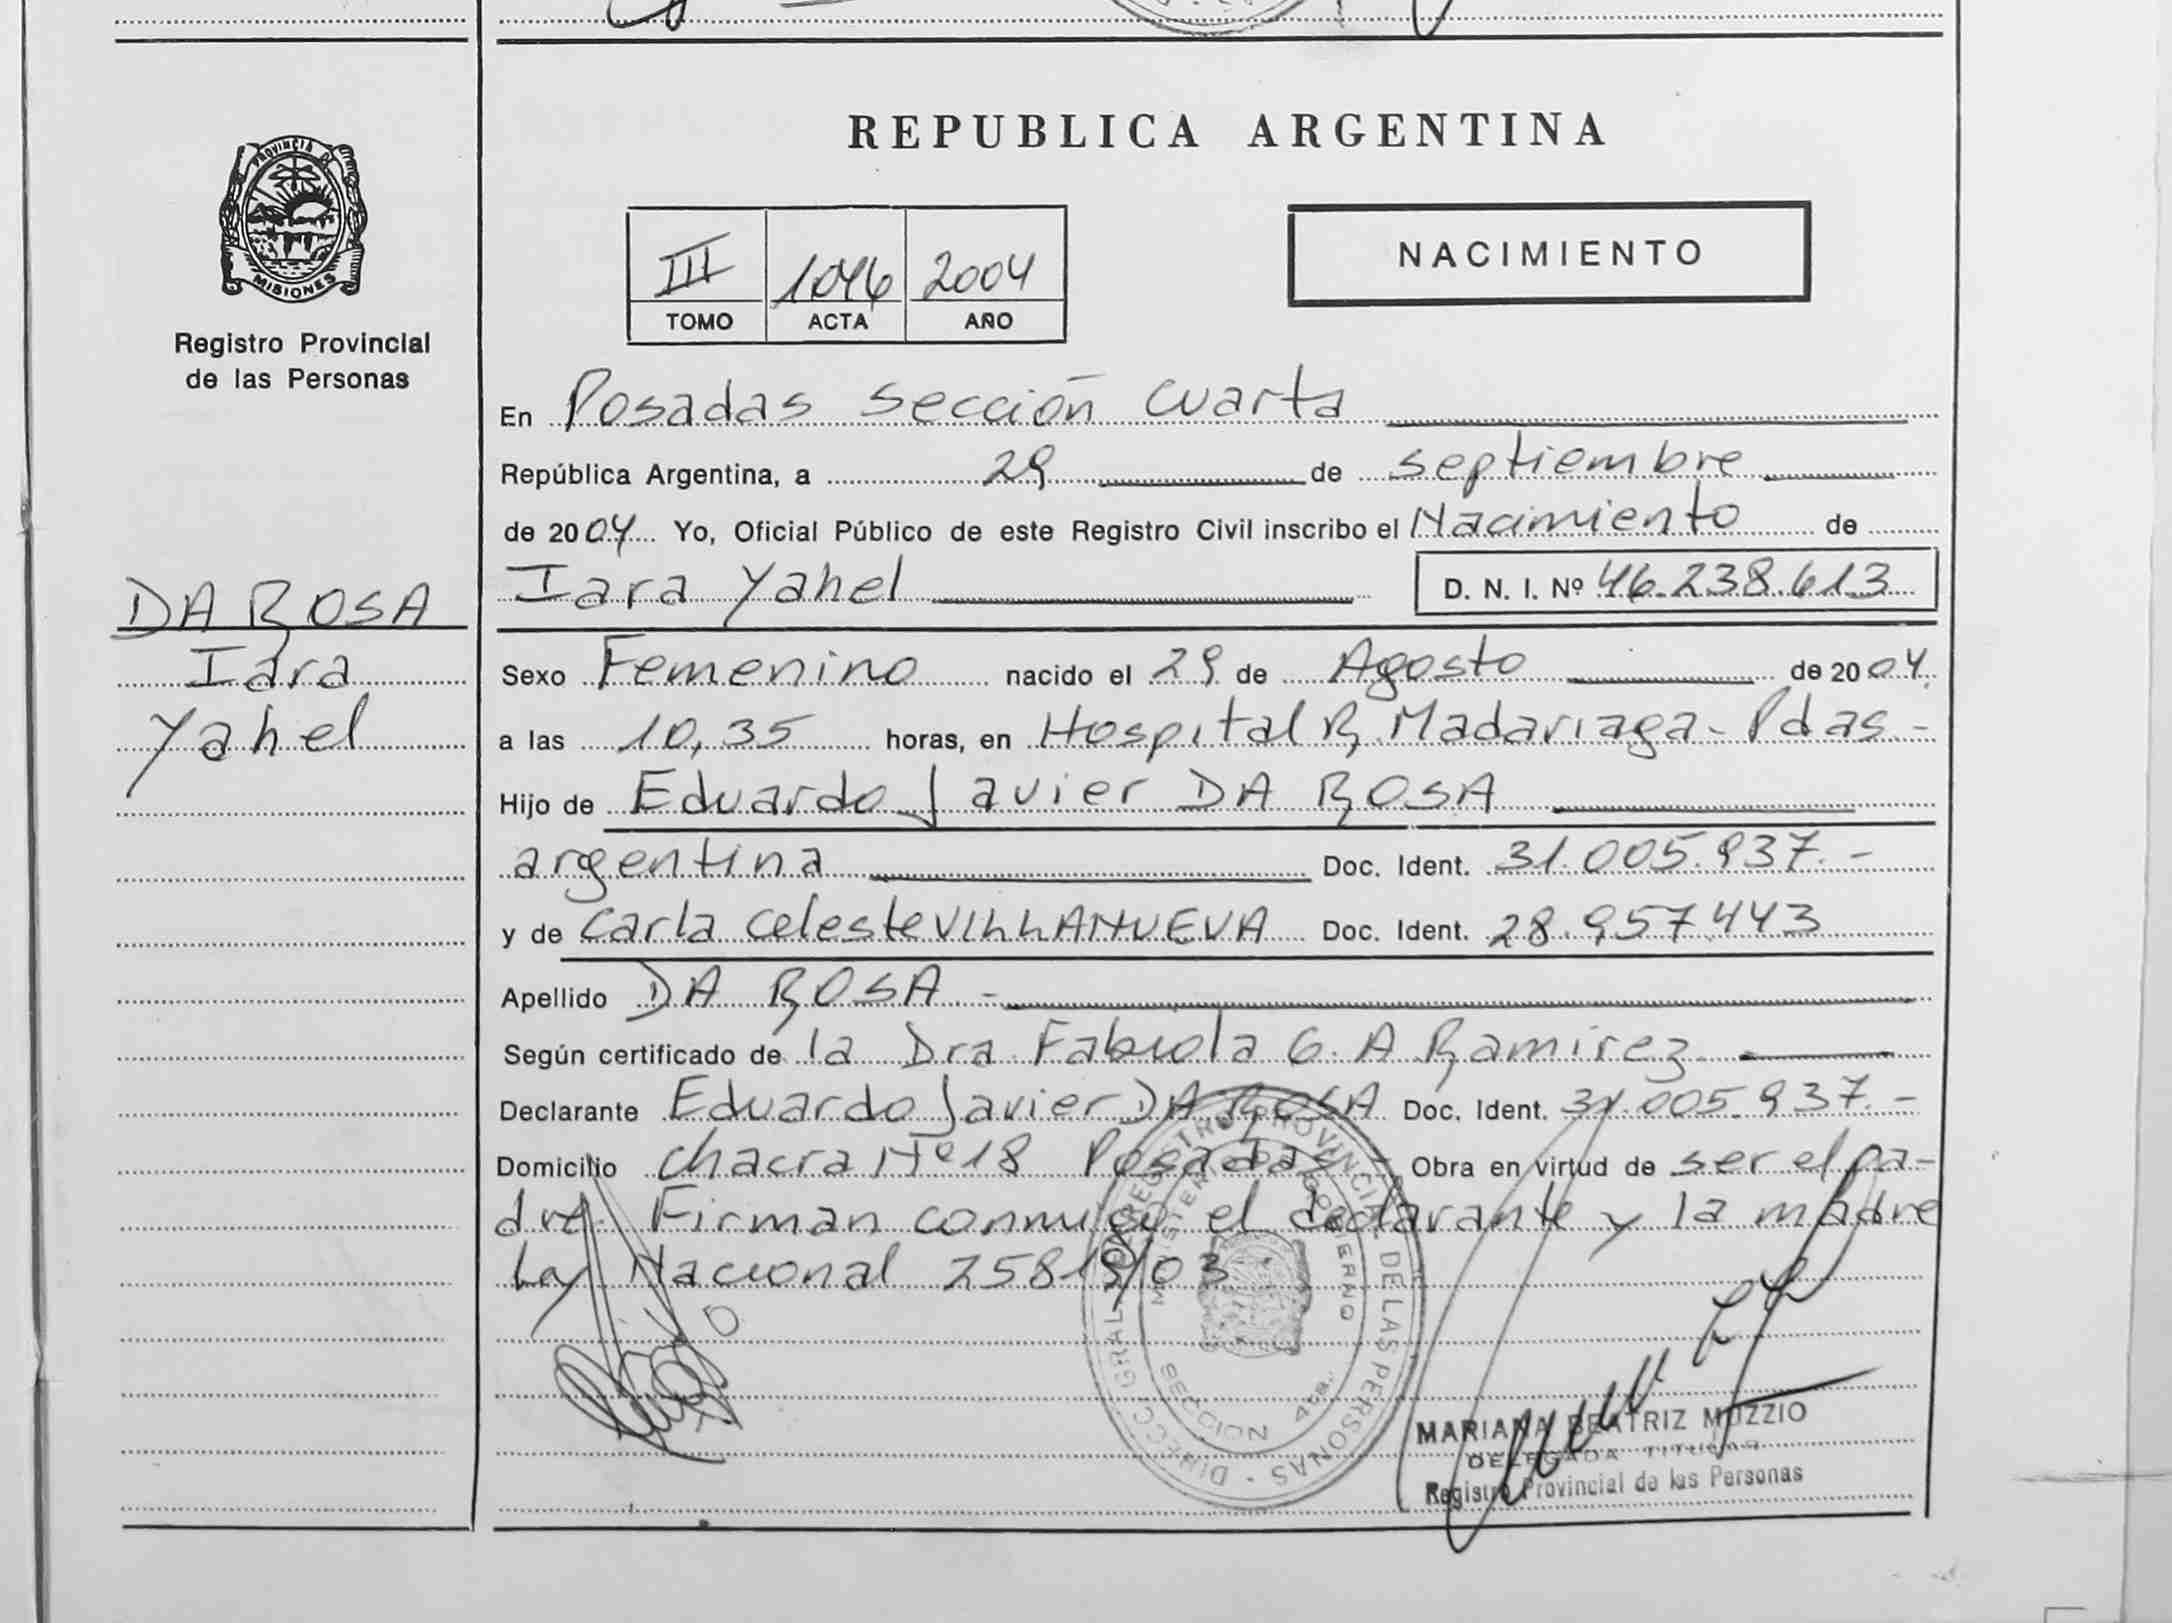 PROVINCIA DE
MISIONES
Registro Provincial
de las Personas
DA ROSA
Iara
Yahel
REPUBLICA ARGENTINA
III 1046 2004
TOMO ACTA AÑO
NACIMIENTO
En Posadas sección cuarta
República Argentina, a 29 de septiembre
de 2004 Yo, Oficial Público de este Registro Civil inscribo el Nacimiento de
Iara Yahel D. N. I. Nº 46.238.613
Sexo Femenino nacido el 29 de Agosto de 2004.
a las 10,35 horas, en Hospital R. Madariaga - Pdas. -
Hijo de Eduardo Javier DA ROSA
argentina Doc. Ident. 31.005.937.-
y de Carla Celeste VILLANUEVA Doc. Ident. 28.957.443
Apellido DA ROSA.-
Según certificado de la Dra. Fabiola G. A. Ramirez
Declarante Eduardo Javier DA ROSA Doc. Ident. 31.005.937.-
Domicilio chacra Nº 18 Posadas - Obra en virtud de ser el pa-
dre. Firman conmigo el declarante y la madre
Ley Nacional 25819/03
DIRECC. GRAL. DE REGISTRO PROVINCIAL DE LAS PERSONAS
MINISTERIO DE GOBIERNO
SECCION 4ta.
MARIANA BEATRIZ MUZZIO
DELEGADA TITULAR
Registro Provincial de las Personas